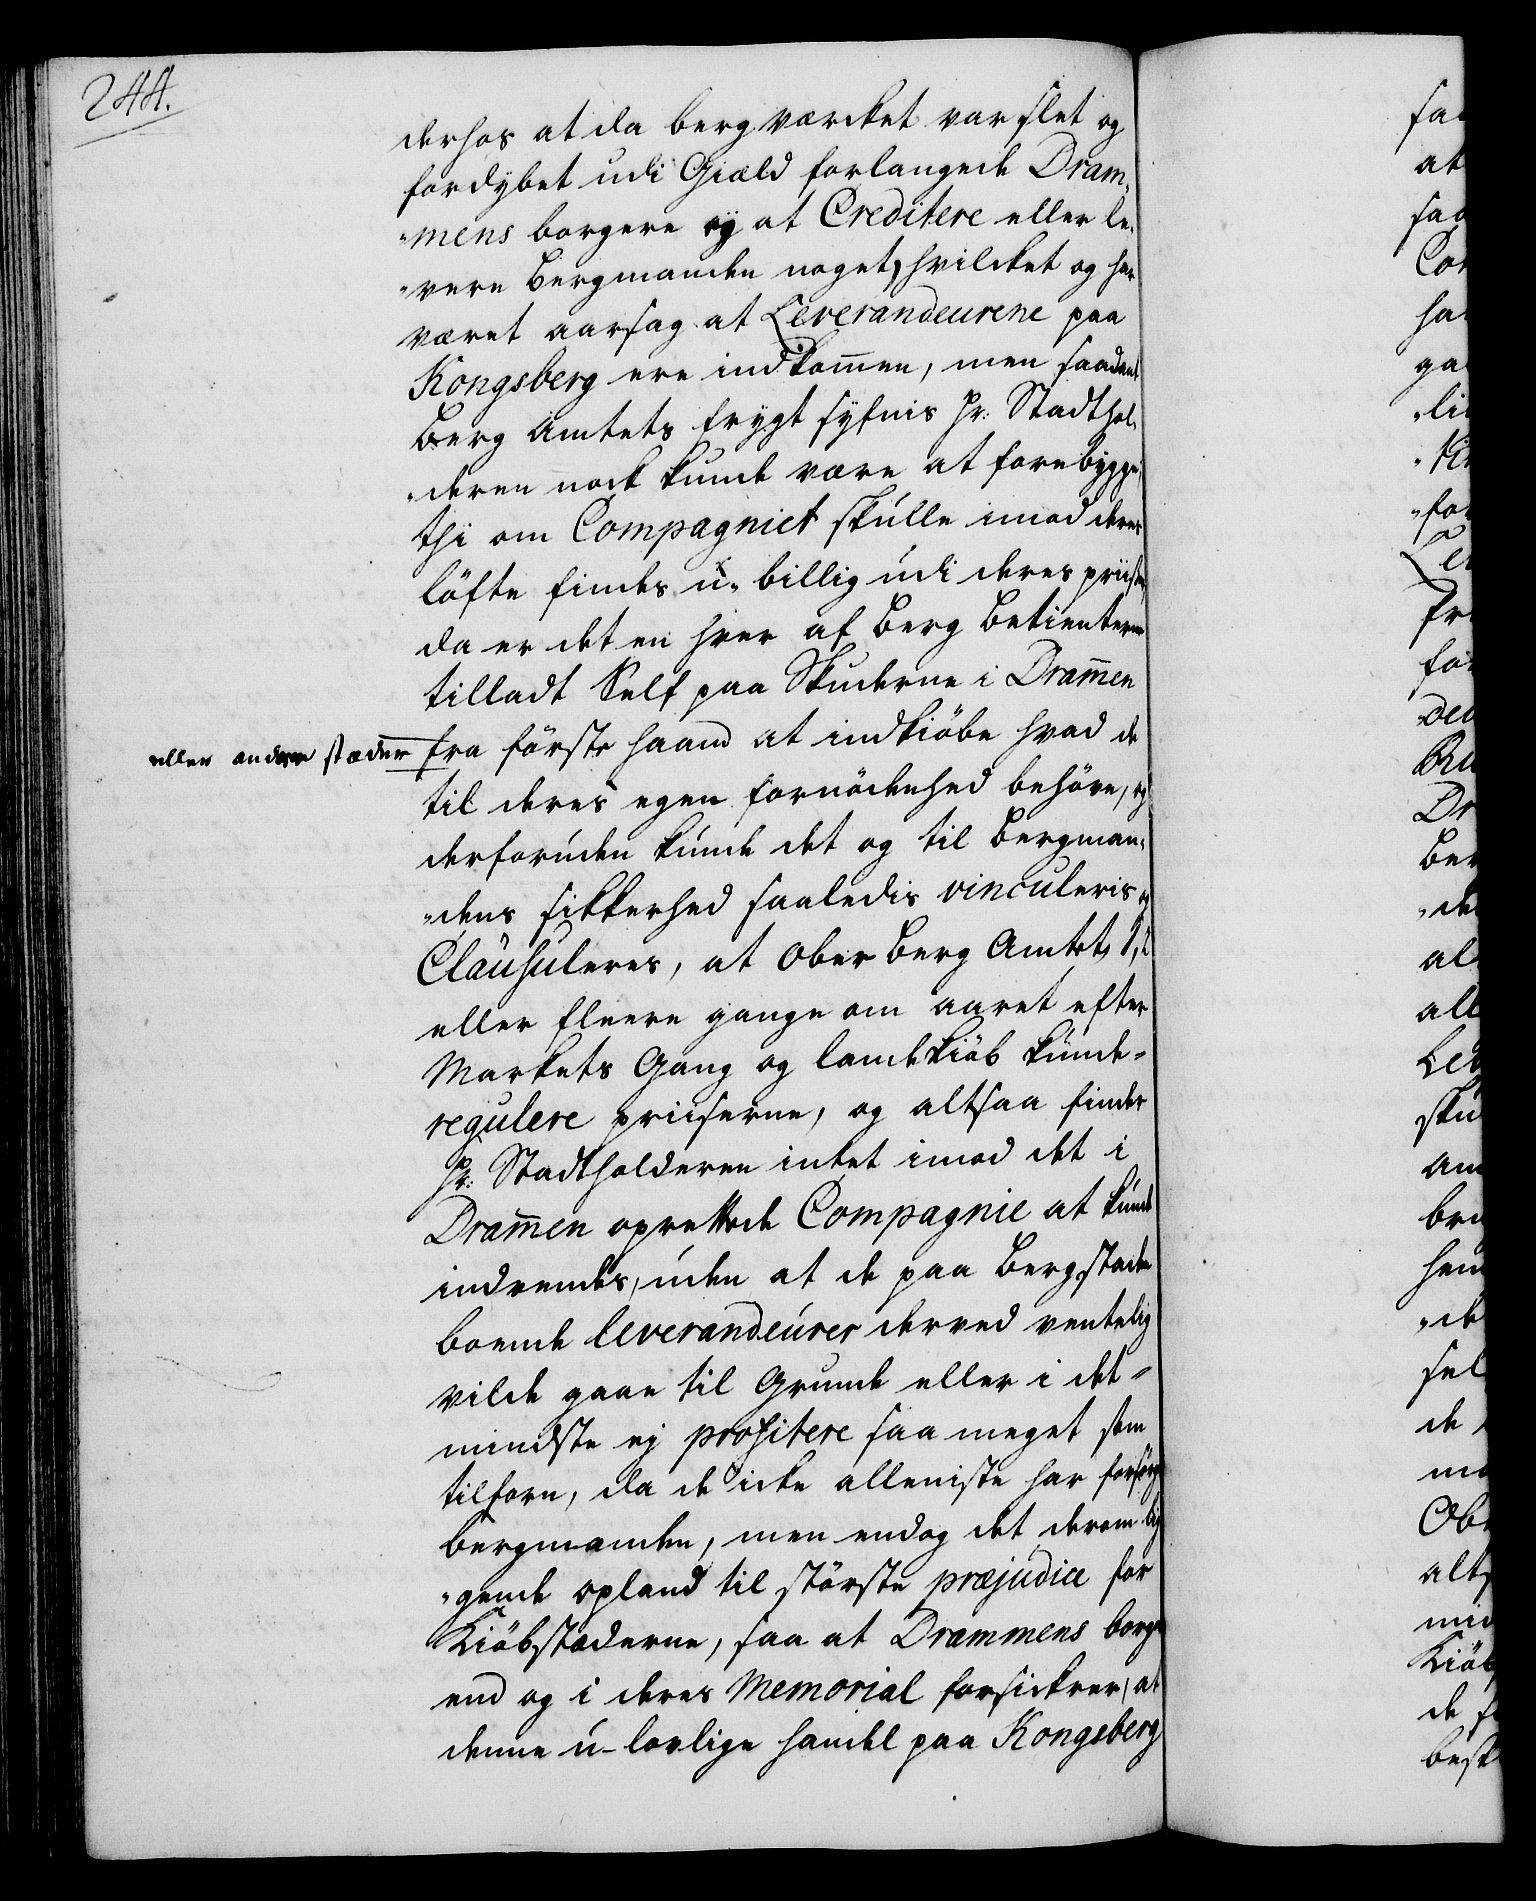 244.
derhos at da bergværcket var slet og
fordybet udi Giæld forlangede Dram¬
„mens borgere ej at Creditere eller le¬
„vere Bergmanden noget, hvilcket og har
været aarsag at Leverandeurene paa
Kongsberg ere indkom̄en, men saadant
Berg Amtets frygt synis Hr: Stadthol¬
„deren nock kunde være at forebygge,
thi om Compagniet skulle imod deres
löfte findes u-billig udi deres priiser,
da er det en hver af Berg Betienterne
tilladt Self paa Skuderne i Dram̄en
eller andre stæder fra förste haand at indkiöbe hvad de
til deres egen fornödenhed behöve, og
derforuden kunde det og til bergman¬
„dens sikkerhed saaledis vinculeris og
Clausuleres, at Ober Berg Amtet 1, 2
eller fleere gange om aaret efter
Markets Gang og landkiöb kunde
regulere priiserne, og altsaa finder
Hr: Stadtholderen intet imod det i
Dram̄en oprettede Compagnie at kunde
indvendes, uden at de paa Bergstaden
boende leverandeurer derved ventelig
vilde gaae til Grunde eller i det
mindste ej profitere saa meget som
tilforn, da de icke alleniste har forsörget
bergmanden, men endog det derom lig
„gende opland til störste præjudice for
Kiöbstæderne, saa at Drammens borgere
end og i deres Memorial forsickrer, at
denne u-lovlige handel paa Kongsberg